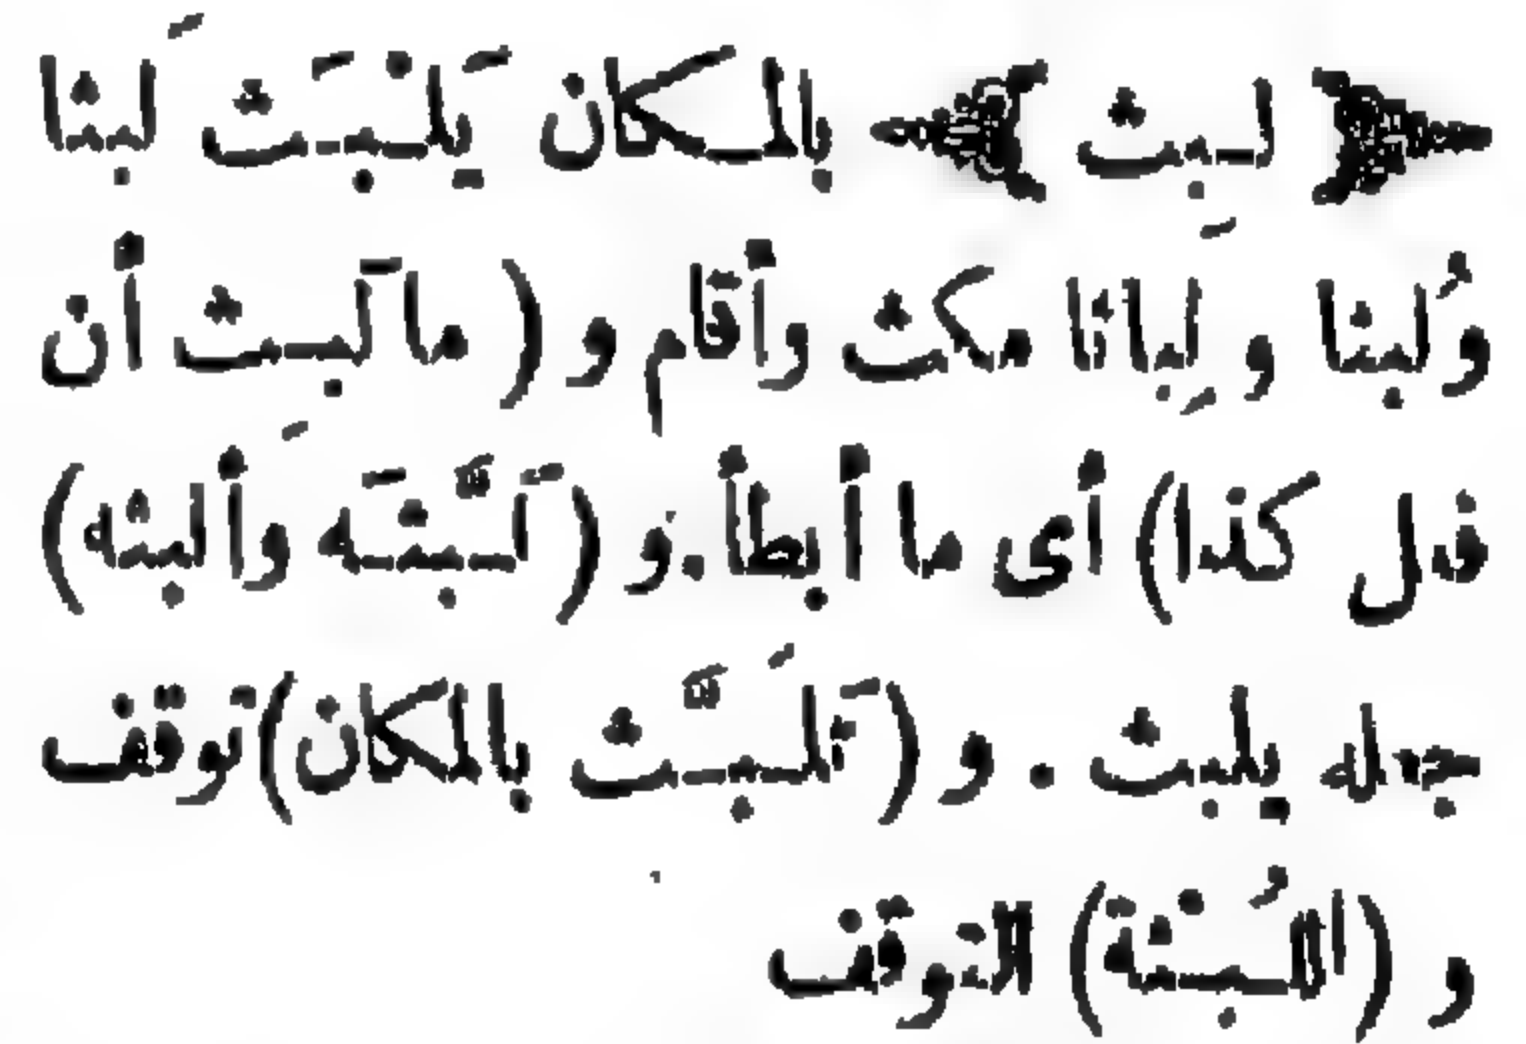 ﴿ لبِث ﴾ بالمكان يَلْبَث لَبثا
ولُبثا و لِباثا مكث وأقام و ( ما لَبِث أن
فعل كذا) أى ما أبطأ. و ( لَبَّثَه وألبثه )
جعله يلبث . و ( تَلَبَّث بالمكان) توقف
و ( اللُبْثة ) التوقف